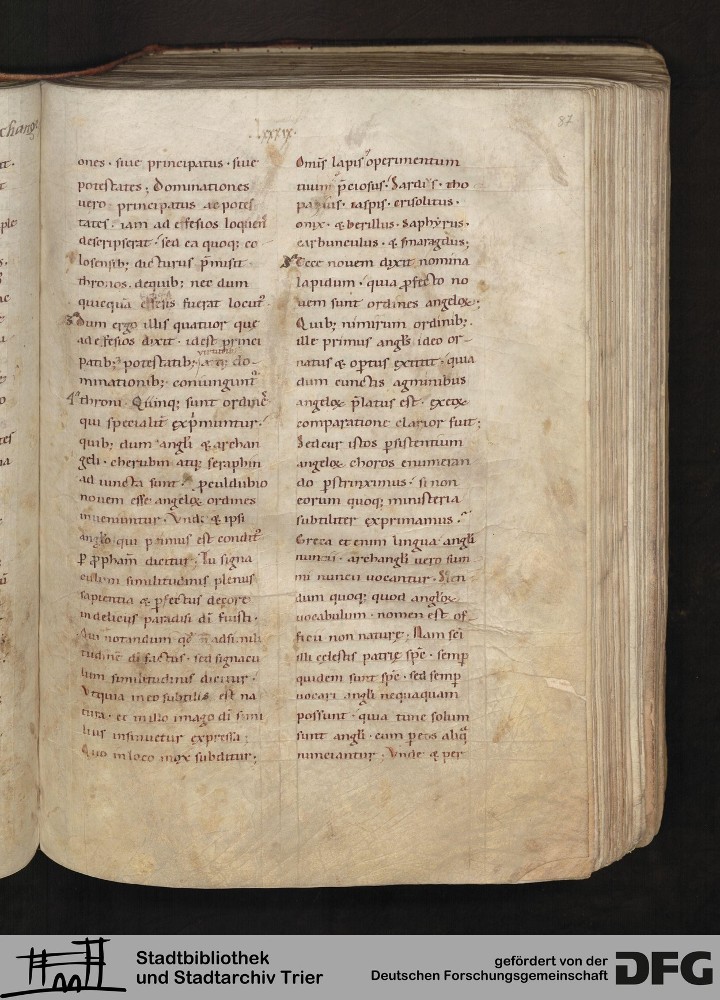 changˀ
.lxxxix.
87
ones · siue principatus · siue
potestates ; Dominationes
uero · principatus ac potes
tates · iam ad effesios loquens
descripserat · sed ea quoq; co
losensib; dicturus p̄misit ·
thronos, de quib; nec dum
quicquā effesiis fuerat locut᷒ ·
Dum ergo illis quatuor que
ad effesios dixit · id est princi
patib; potestatib; uirtutib; atq; do-
minationib; coniungunt᷒
throni · Quinq; sunt ordinē
qui specialit̄ exp̄muntur ·
quib; dum angl̄i & archan
geli · cherubin atq; seraphin
ad iuncta sunt · p̄culdubio
nouem esse angeloꝝ ordines
inueniuntur · Vnde & ipsi
anglo qui primus est condit᷒
ꝑ ꝓpham̄ dicitur ; Tu signa
culum similitudinis plenus
sapientia & ꝑfectus decore
in deliciis paradisi dī fuisti ·
Qui notandum qđ n̄ ad simili
tudinē dī factus · sed signacu
lum similitudinis dicitur ·
Vt quia in eo subtilis est na
tura · et in illo imago dī simi
lius insinuetur expressa ;
Quo in loco mox subditur ;
Omis lapis operimentum
tuum p̄ciosus · Sardi᷒s · tho
pazius · iaspis · crisolitus ·
onix · & berillus · saphyrus ·
carbunculus · & smaragdus ;
Ecce nouem dixit nomina
lapidum · quia ꝓfecto no
uem sunt ordines angeloꝝ ;
Quib; nimirum ordinib; ·
ille primus angl̄s ideo or-
natus & optus extitit · quia
dum cunctis agminibus
angeloꝝ p̄latus est · ex eoꝝ
comparatione clarior fuit ;
Sed cur istos ꝑsistentium
angeloꝝ choros enumeran
do ꝑstrinximus · si non
eorum quoq; ministeria
subtiliter exprimamus ·
Greca etenim lingua angl̄i
nuntii · archangl̄i uero sum
mi nuncii uocantur · Scien
dum quoq; quod angl̄oꝝ
uocabulum · nomen est of-
ficii non naturę ; Nam sc̄i
illi cęlestis patrię sp̄c · semꝑ
quidem sunt sp̄c · sed semꝑ
uocari angl̄i nequaquam
possunt · quia tunc solum
sunt angl̄i · cum ꝑ eos aliq̄
nunciantur ; Vnde & per
Stadtbibliothek
und Stadtarchiv Trier
gefördert von der
Deutschen Forschungsgemeinschaft
DFG